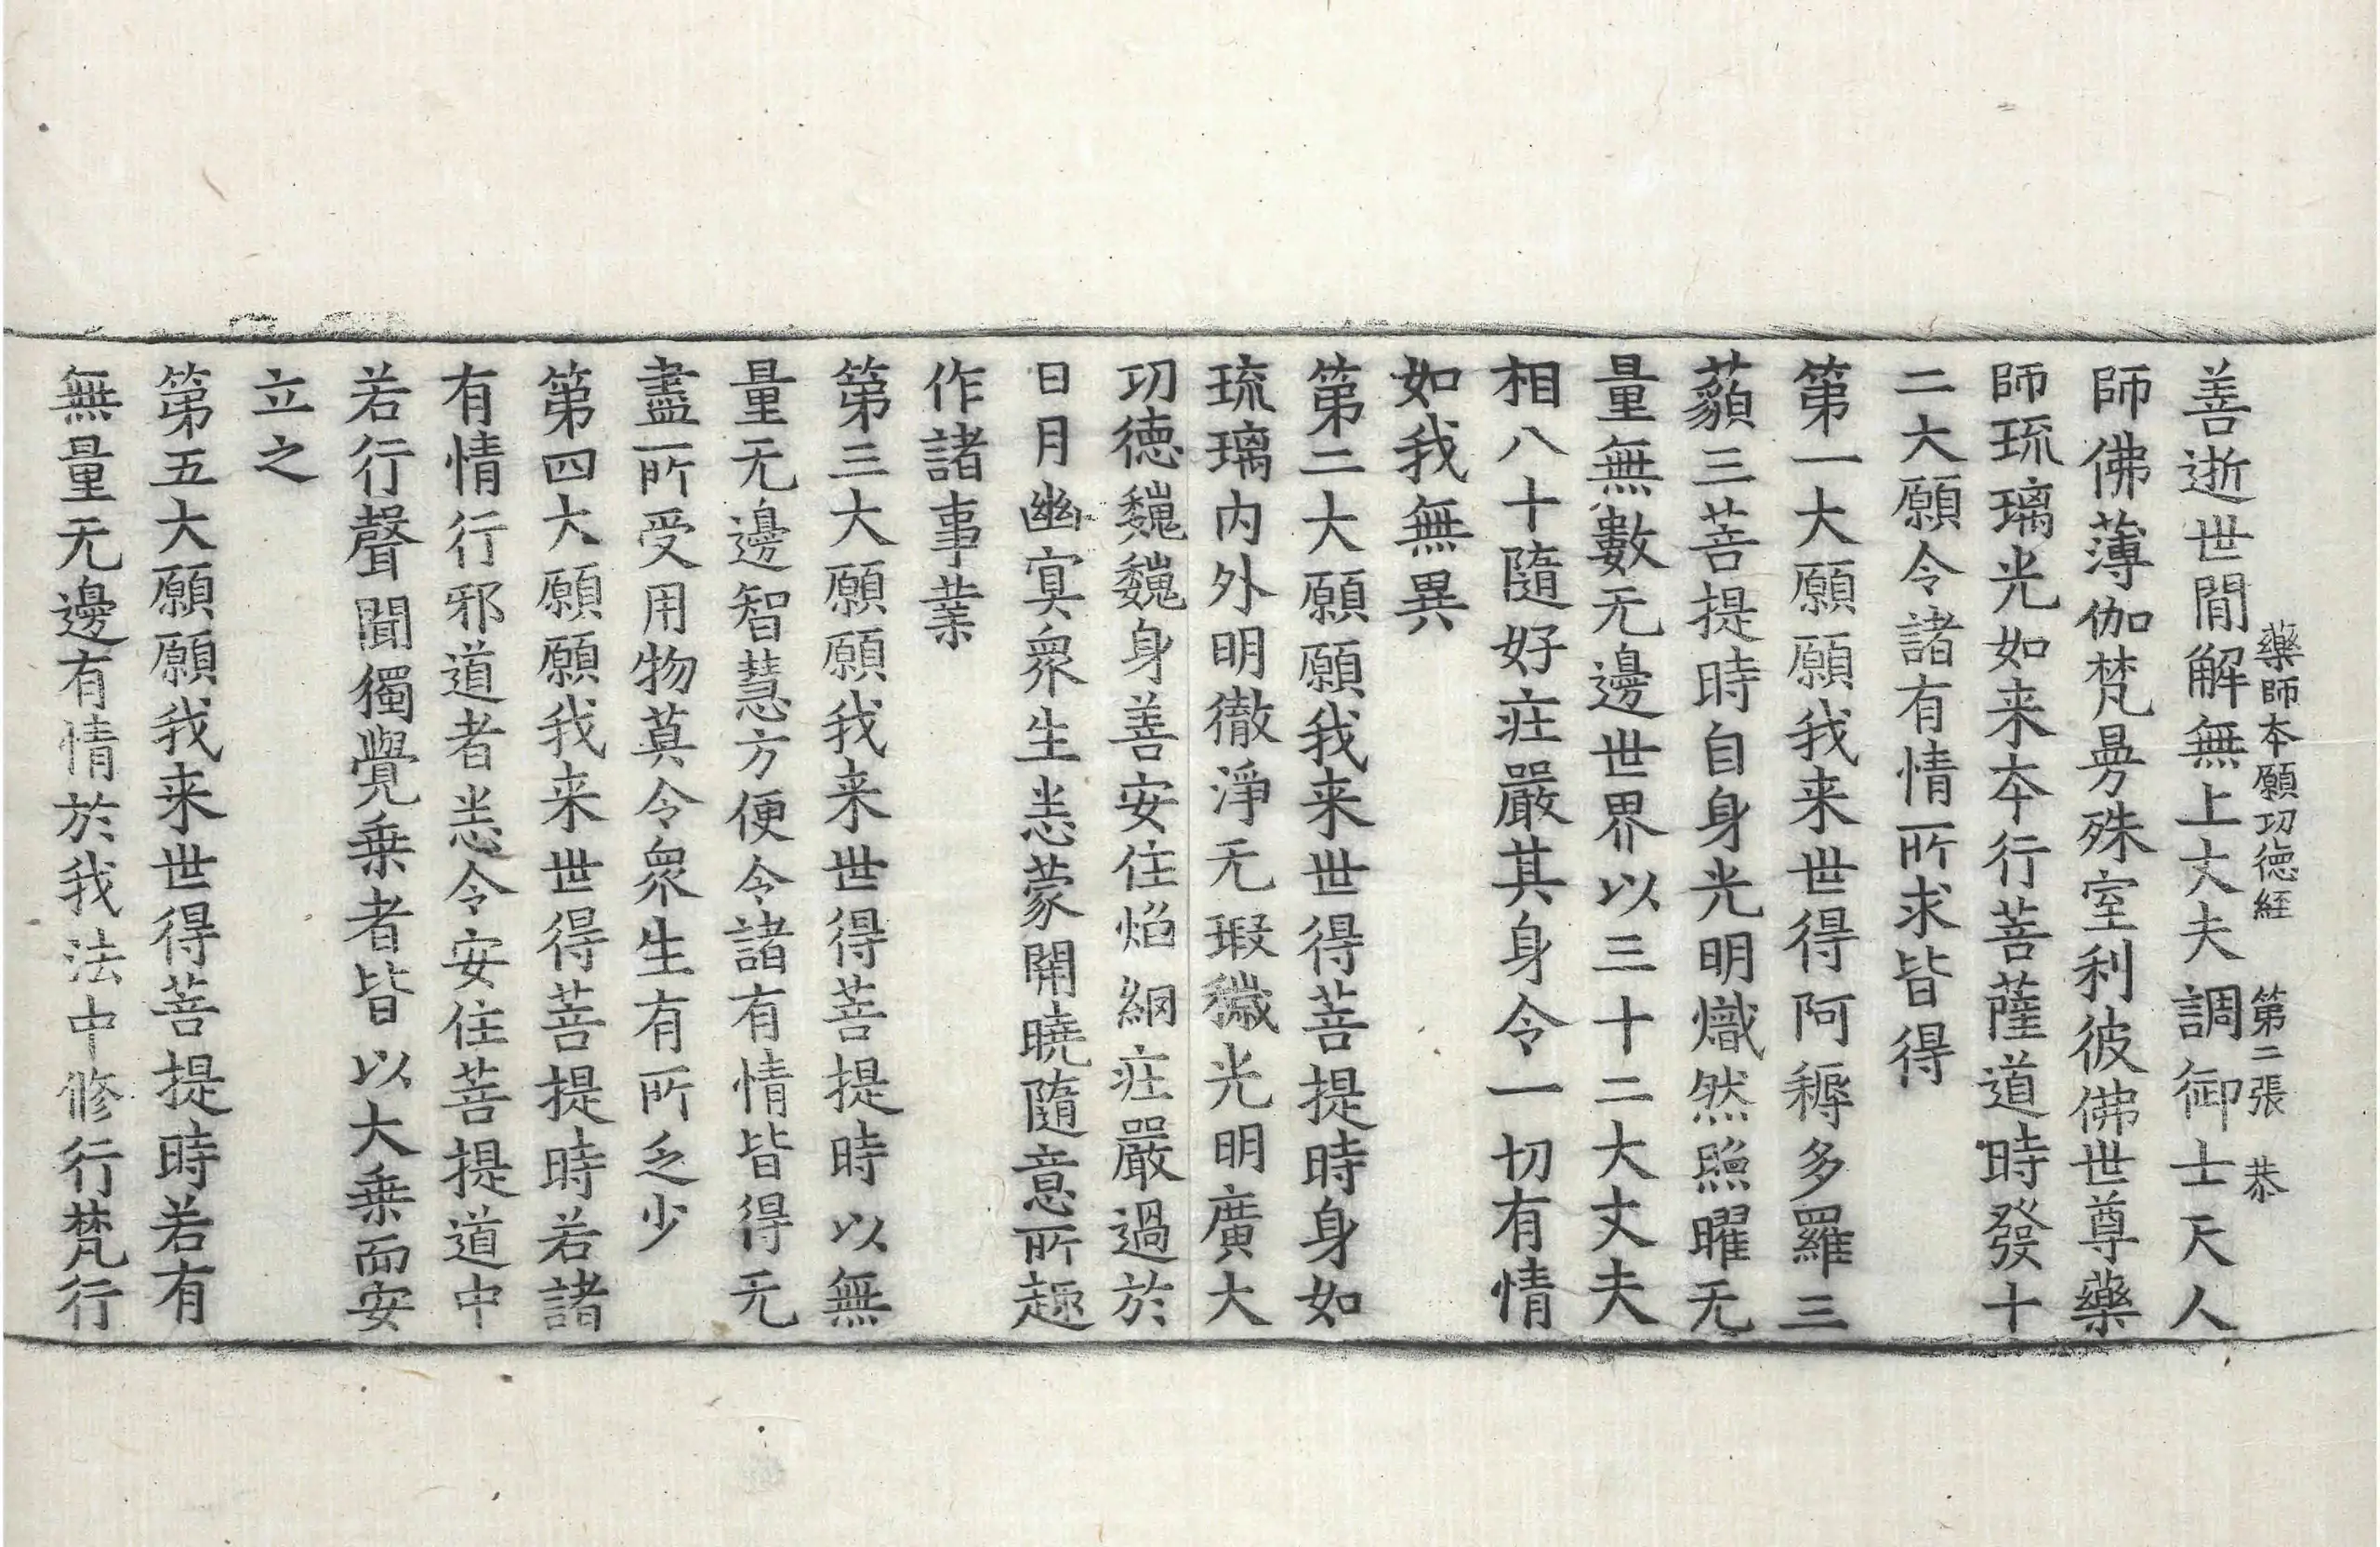 藥師本願功德經 第二張 恭
善逝世間解無上丈夫調御士天人
師佛薄伽梵曼殊室利彼佛世尊藥
師琉璃光如来本行菩薩道時發十
二大願令諸有情所求皆得
第一大願願我来世得阿耨多羅三
藐三菩提時自身光明熾然照曜无
量無數无邊世界以三十二大丈夫
相八十隨好莊嚴其身令一切有情
如我無異
第二大願願我来世得菩提時身如
琉璃内外明徹淨无瑕穢光明廣大
功德巍巍身善安住焰網莊嚴過於
日月幽冥衆生悉蒙開曉隨意所趣
作諸事業
第三大願願我来世得菩提時以無
量无邊智慧方便令諸有情皆得无
盡所受用物莫令衆生有所乏少
第四大願願我来世得菩提時若諸
有情行邪道者悉令安住菩提道中
若行聲聞獨覺乘者皆以大乘而安
立之
第五大願願我来世得菩提時若有
無量无邊有情於我法中修行梵行